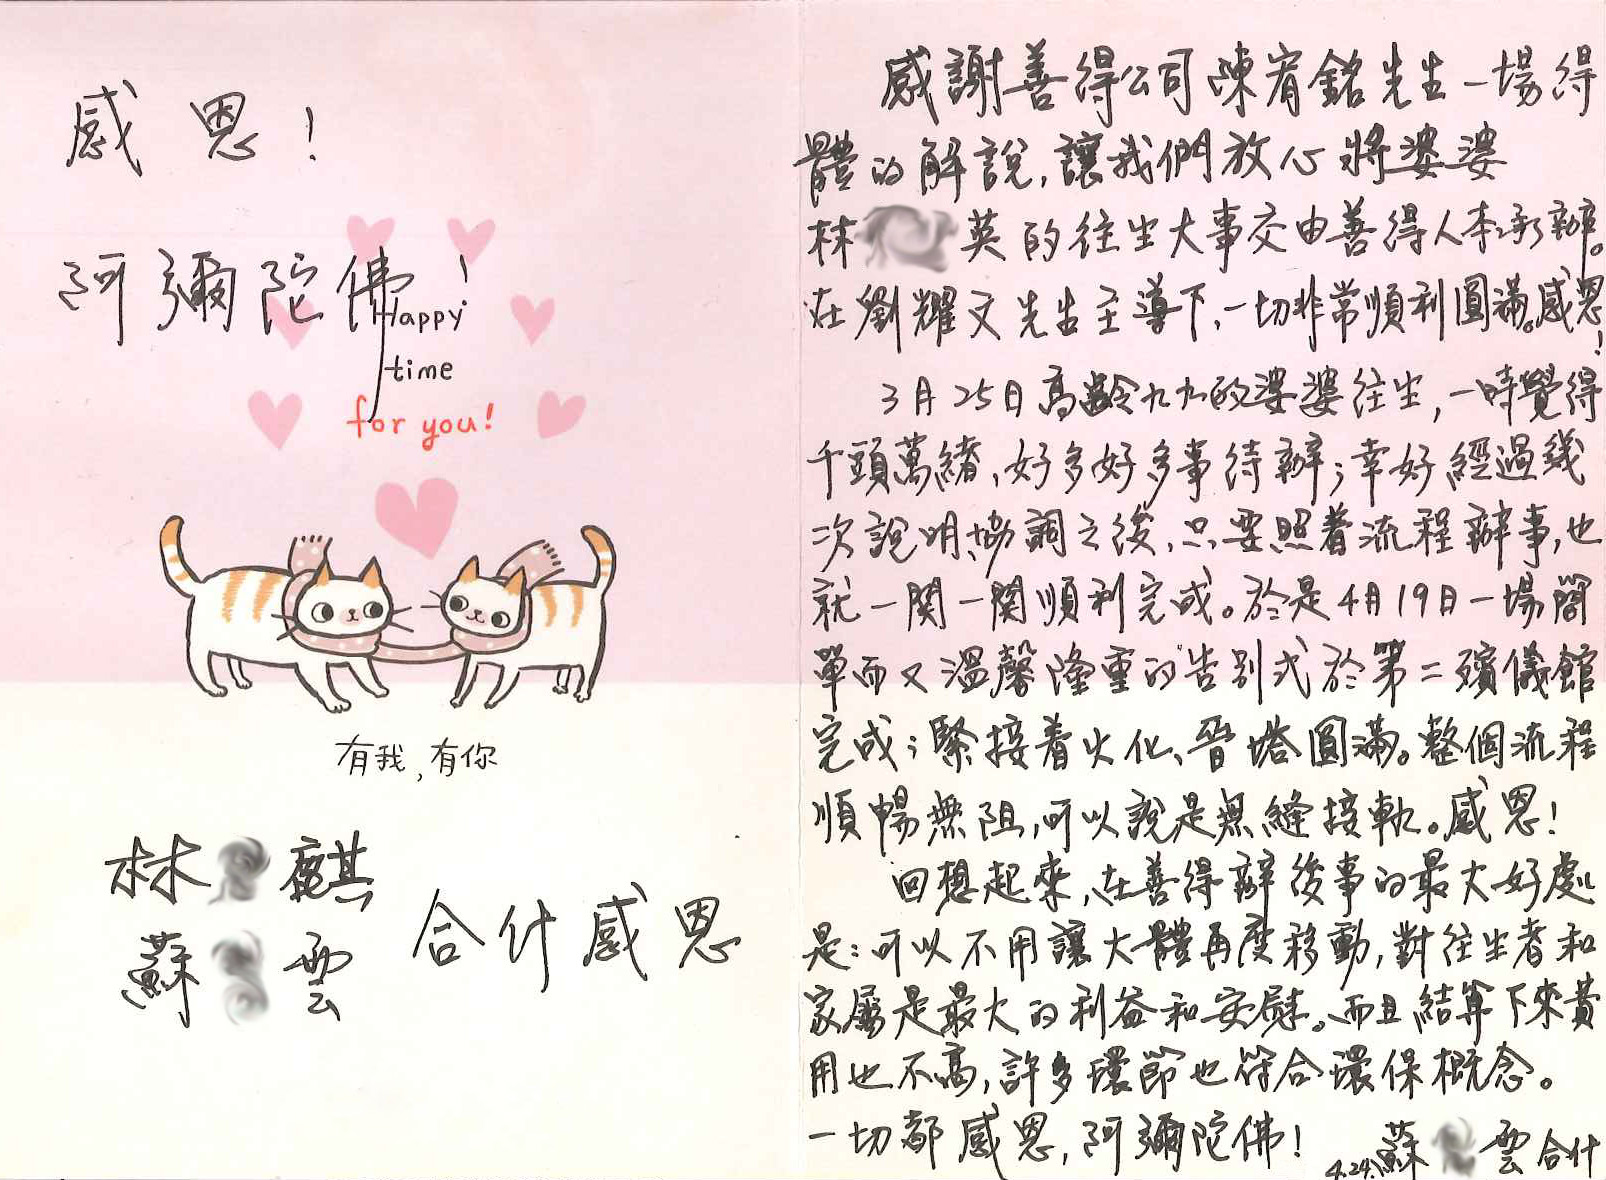 感恩！
阿彌陀佛！
Happy
time
for you!
有我,有你
林 麒
蘇 雲
合什感恩
感謝善得公司陳宥銘先生一場得
體的解說,讓我們放心將婆婆
林 英的往生大事交由善得人本承辦。
在劉耀文先生主導下,一切非常順利圓滿。感恩!
3月25日高齡九九的婆婆往生,一時覺得
千頭萬緒、好多好多事待辦;幸好經過幾
次說明、協調之後,只要照著流程辦事,也
就一関一関順利完成。於是4月19日一場簡
單而又溫馨隆重的告別式於第二殯儀館
完成;緊接着火化、晉塔圓滿。整個流程
順暢無阻,可以說是無縫接軌。感恩!
回想起來,在善得辦後事的最大好處
是:可以不用讓大體再度移動,對往生者和
家屬是最大的利益和安慰。而且結算下來費
用也不高,許多環節也符合環保概念。
一切都感恩,阿彌陀佛!
4.24.蘇 雲合什